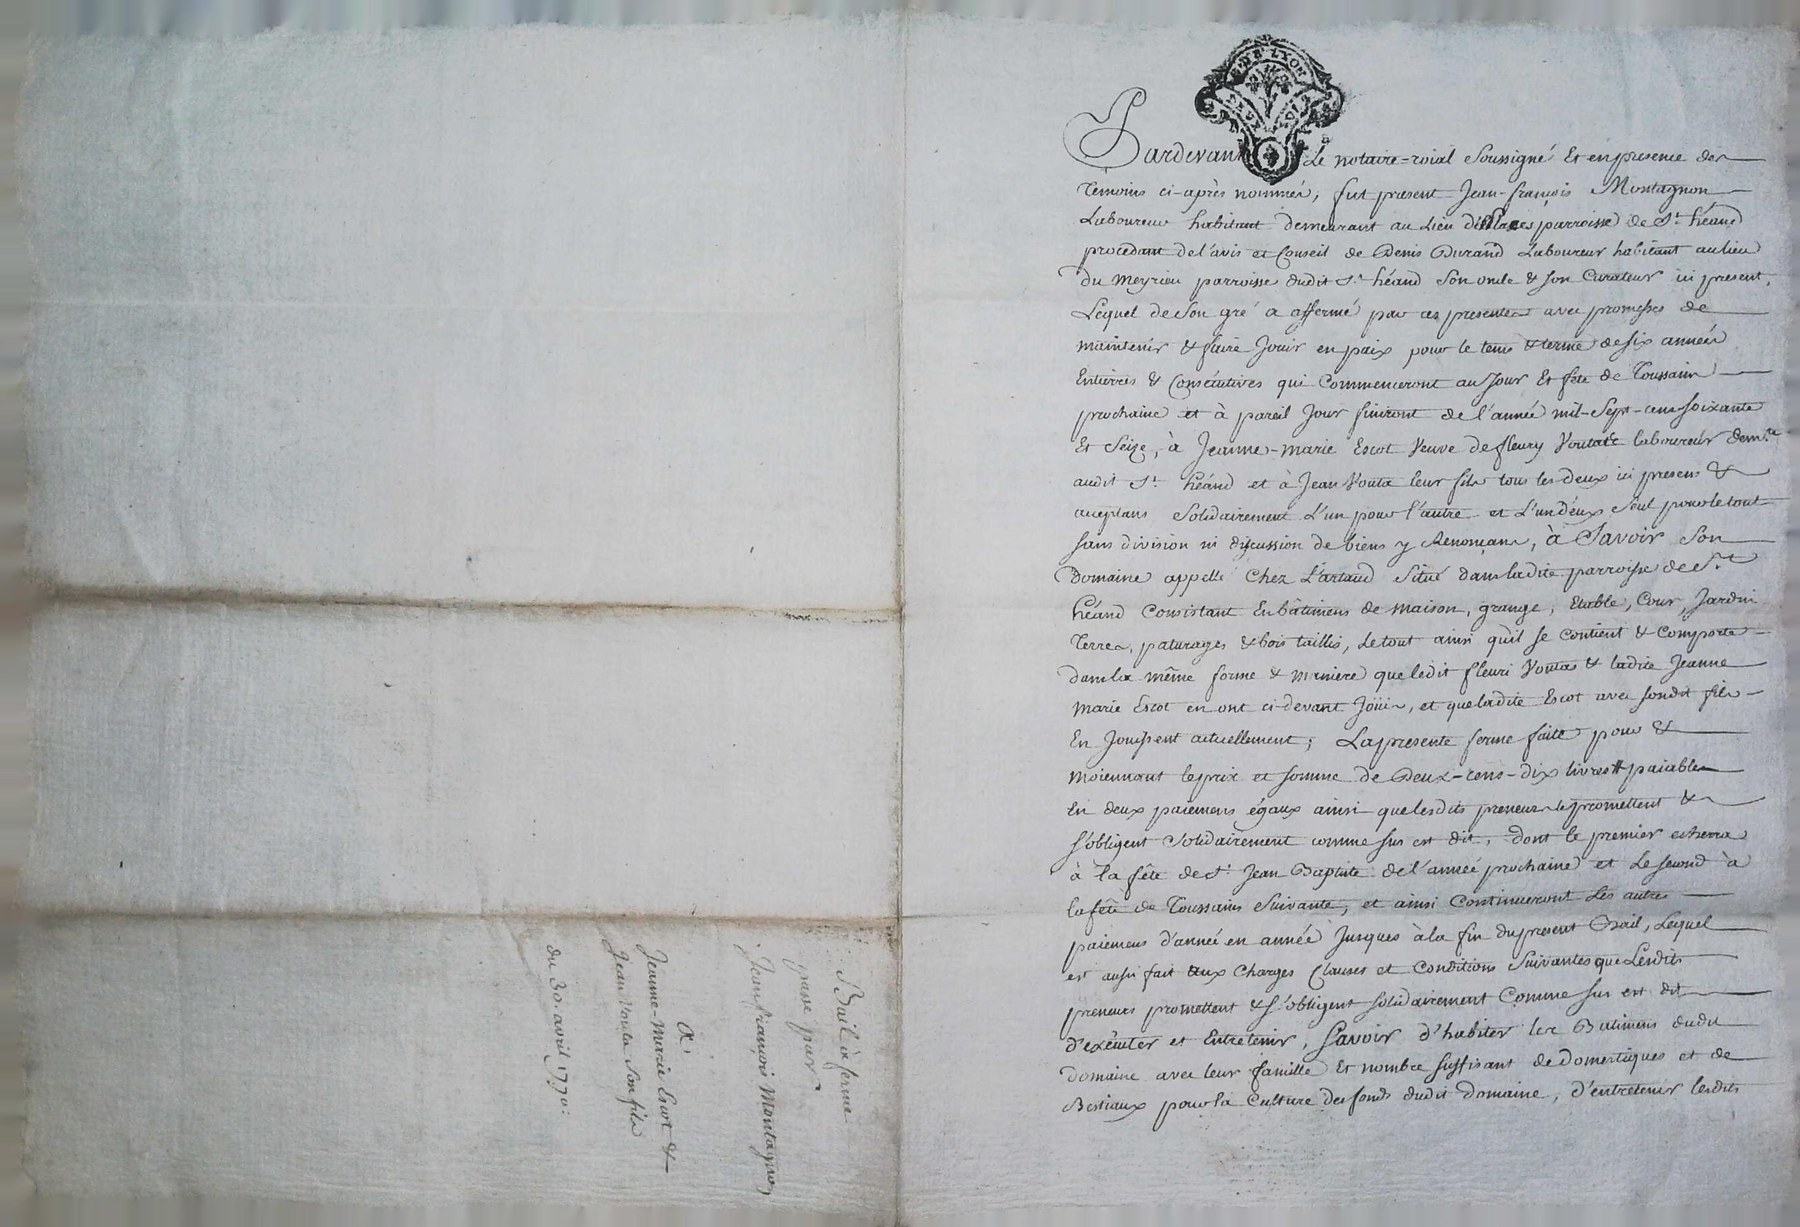 DE LYON
Pardevant Le notaire-roial Soussigné Et en presence des
Temoins ci-après nommés, fut present Jean-françois Montagnon
Laboureur habitant demeurant au Lieu parroisse de St. héand
procedant de l'avis et Conseil de Denis Durand Laboureur habitant au lieu
Du Meyrieu parroisse dudit St. héand Son oncle & Son Curateur ici present,
Lequel de Son gré a affermé par ces presentes avec promesses de
maintenir & faire Jouir en paix pour le tems & terme de six années
Entieres & Consécutives qui Commenceront au Jour Et fête de Toussains
prochaine et à pareil Jour finiront de l'année mil-Sept-cens-soixante
Et Seize, à Jeanne-Marie Escot Veuve de fleury laboureur demte
audit St. héand et à Jean Vouta leur fils tous les deux ici presens &
acceptans Solidairement L'un pour l'autre et L'un d'eux Seul pour le tout
sans division ni discussion de biens y Renonçans, à Savoir Son
Domaine appellé Chez L'artaud Situé dans ladite parroisse de St.
héand Consistant En bâtimens de maison, grange, Etable, Cour, Jardin
Terres, paturages & bois taillis, Le tout ainsi qu'il se contient & comporte
dans la même forme & maniere que ledit fleuri Voutas & ladite Jeanne
Marie Escot en ont ci-devant Joüis, et que ladite Escot avec sondit fils
En Jouissent actuellement; La presente ferme faite pour &
moiennant le prix et somme de Deux-cens-dix livres paiables
En deux paiemens égaux ainsi que lesdits preneurs le promettent &
s'obligent Solidairement comme sus est dit, dont le premier echerra
à la fête de St. Jean Baptiste de l'année prochaine et Le second à
la fête de Toussains Suivante, et ainsi Continueront Les autres
paiemens d'année en année Jusques à la fin du present Bail, Lequel
est aussi fait aux Charges Clauses et Conditions Suivantes que Lesdits
preneurs promettent & s'obligent solidairement Comme sus est dit
d'exécuter et Entretenir, Savoir d'habiter les Batimens dudit
domaine avec leur famille Et nombre suffisant de Domestiques et de
Bestiaux pour la Culture des fonds dudit Domaine, d'entretenir lesdits
Bail à ferme
passé par
Jean françois Montagnon
à
Jeanne-Marie Escot &
Jean Vouta Son fils
du 30. avril 1770.